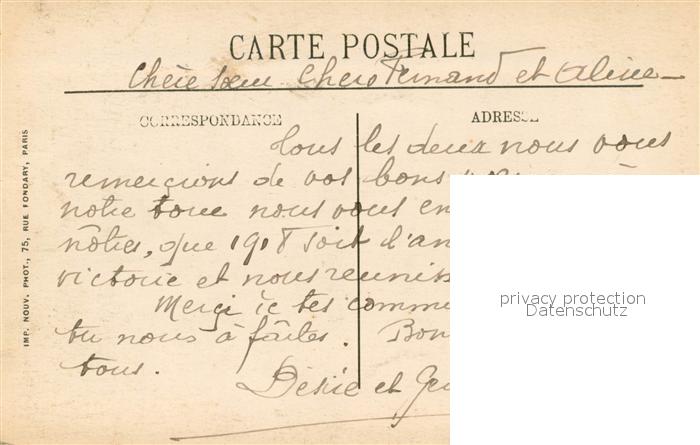 CARTE POSTALE
Chère sœur Chers Fernand et Aline
CORRESPONDANCE
ADRESSE
Tous les deux nous vous
remercions de vos bons
notre tour nous vous en
nôtres, que 1918 soit l'an
victoire et nous reuniss
Merci de tes comm
tu nous à faites. Bon
tous.
Désiré et Ge
IMP. NOUV. PHOT., 75, RUE FONDARY, PARIS
privacy protection
Datenschutz